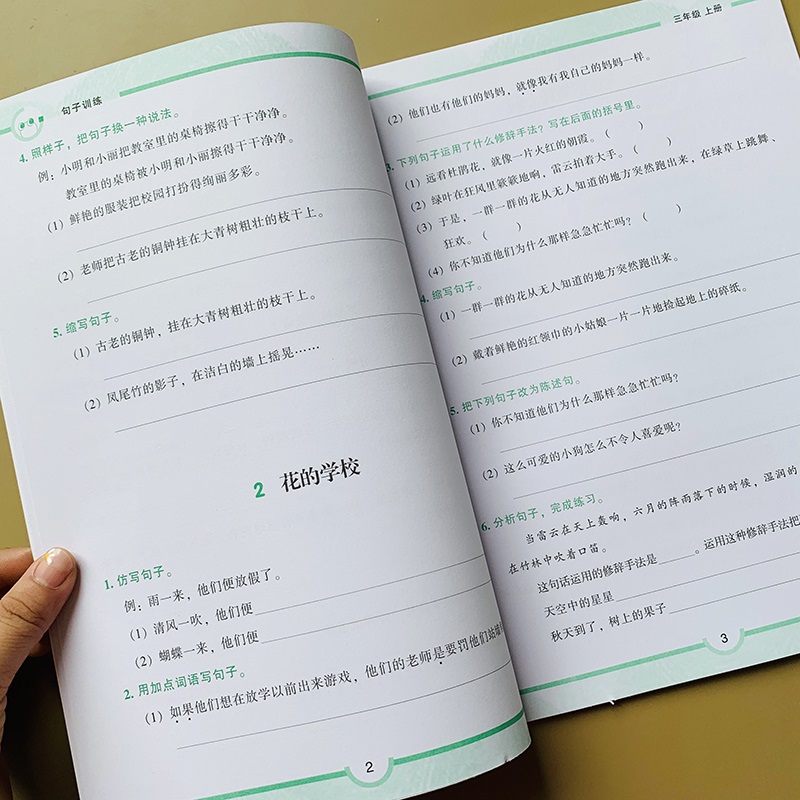 句子训练
4. 照样子，把句子换一种说法。
例：小明和小丽把教室里的桌椅擦得干干净净。
教室里的桌椅被小明和小丽擦得干干净净。
(1) 鲜艳的服装把校园打扮得绚丽多彩。
(2) 老师把古老的铜钟挂在大青树粗壮的枝干上。
5. 缩写句子。
(1) 古老的铜钟，挂在大青树粗壮的枝干上。
(2) 凤尾竹的影子，在洁白的墙上摇晃……
2 花的学校
1. 仿写句子。
例：雨一来，他们便放假了。
(1) 清风一吹，他们便
(2) 蝴蝶一来，他们便
2. 用加点词语写句子。
(1) 如果他们想在放学以前出来游戏，他们的老师是要罚他们站
2
三年级 上册
(2) 他们也有他们的妈妈，就像我有我自己的妈妈一样。
3. 下列句子运用了什么修辞手法？写在后面的括号里。
(1) 远看杜鹃花，就像一片火红的朝霞。（ ）
(2) 绿叶在狂风里簌簌地响，雷云拍着大手。（ ）
(3) 于是，一群一群的花从无人知道的地方突然跑出来，在绿草上跳舞、
狂欢。（ ）
(4) 你不知道他们为什么那样急急忙忙吗？（ ）
4. 缩写句子。
(1) 一群一群的花从无人知道的地方突然跑出来。
(2) 戴着鲜艳的红领巾的小姑娘一片一片地捡起地上的碎纸。
5. 把下列句子改为陈述句。
(1) 你不知道他们为什么那样急急忙忙吗？
(2) 这么可爱的小狗怎么不令人喜爱呢？
6. 分析句子，完成练习。
当雷云在天上轰响，六月的阵雨落下的时候，湿润的
在竹林中吹着口笛。
这句话运用的修辞手法是______。运用这种修辞手法把
天空中的星星
秋天到了，树上的果子
3